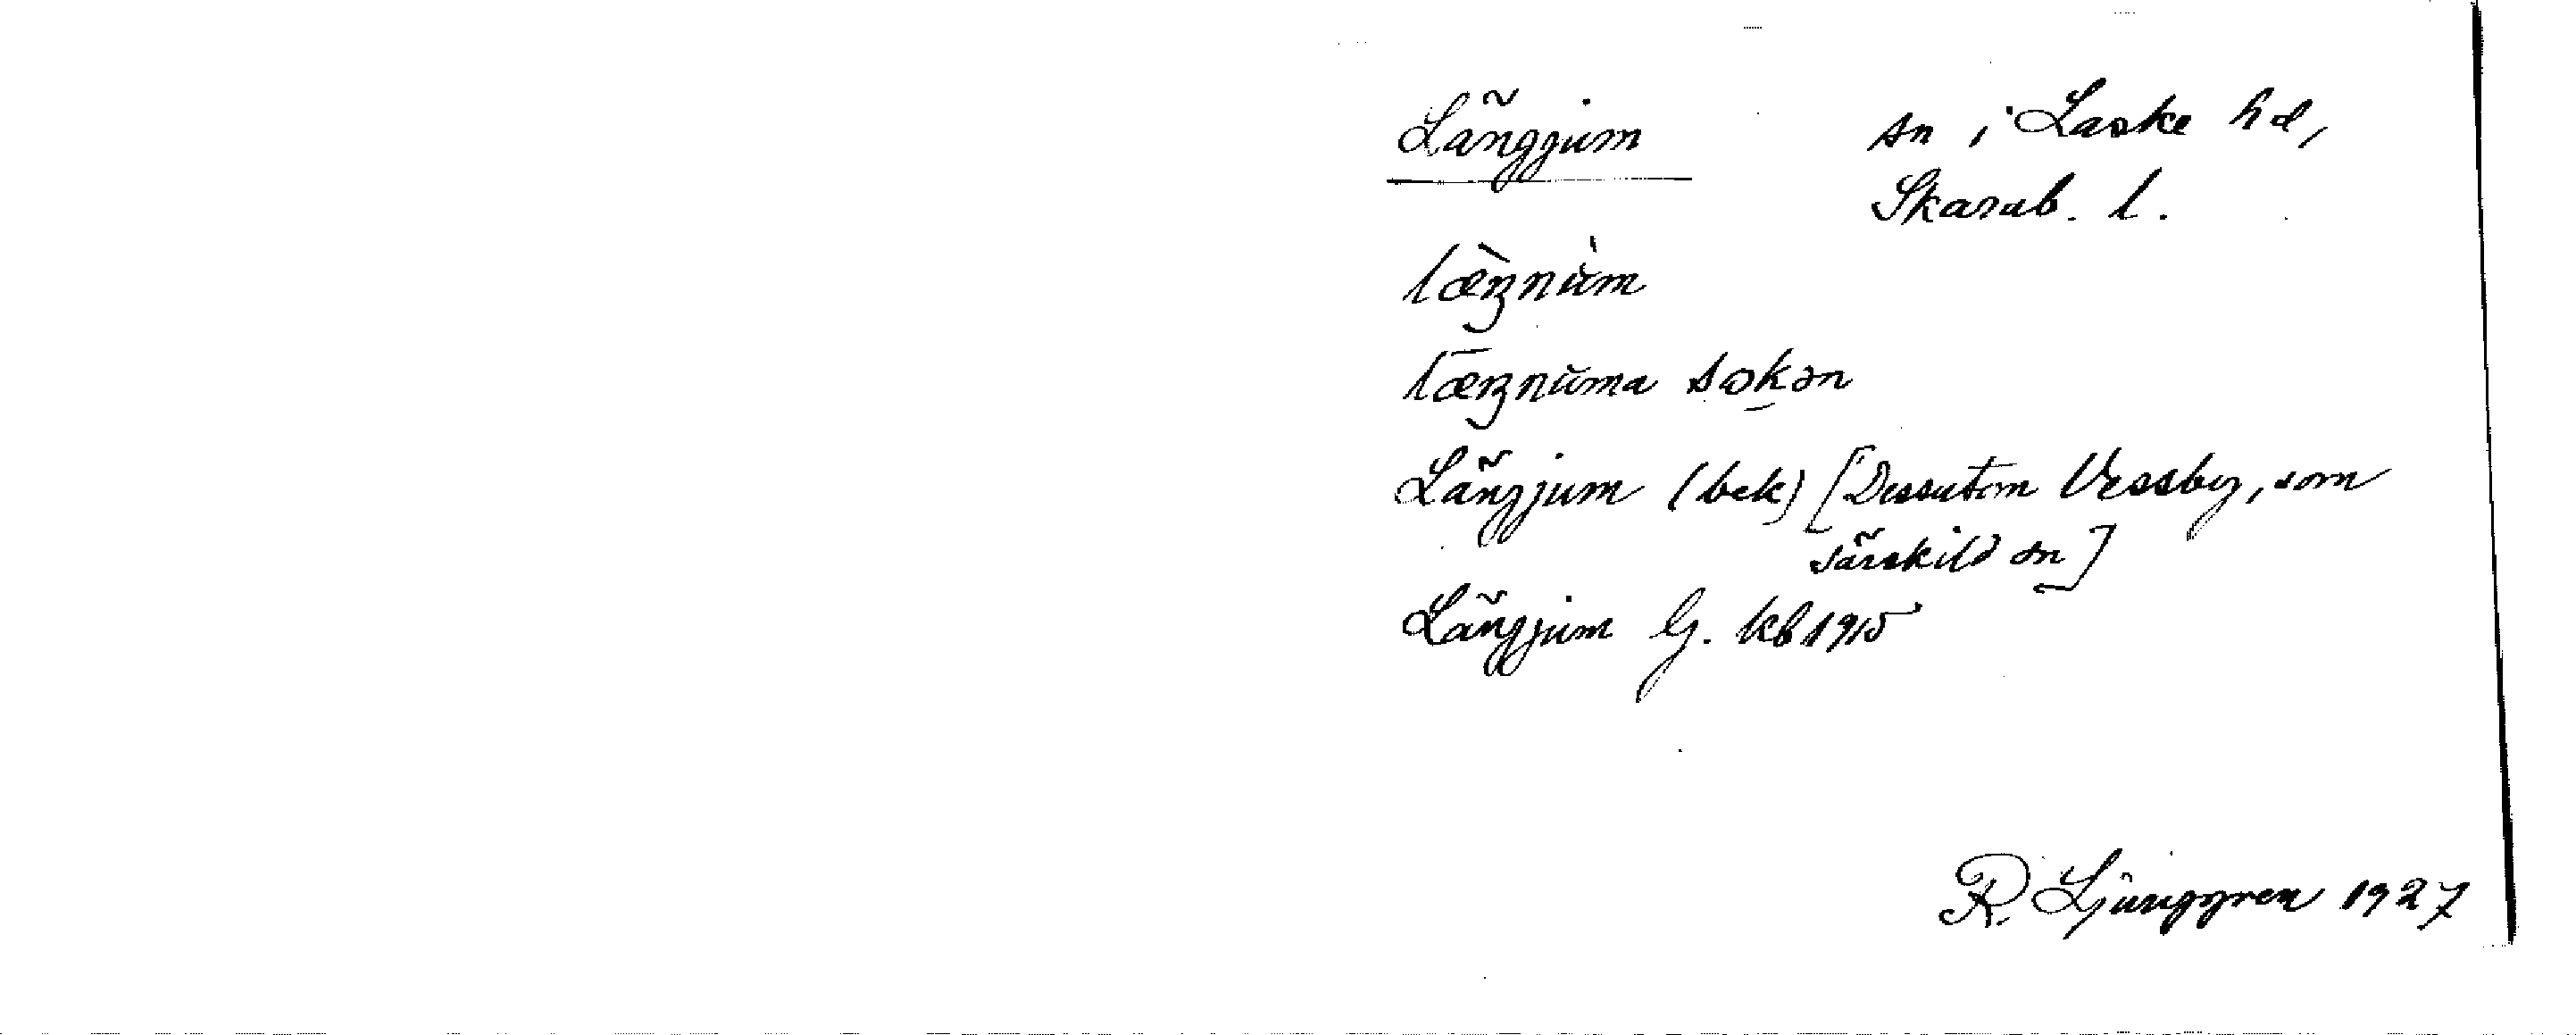 Längjum
sn i Laske hd,
Skarab. l.
læŋnùm
læŋnŭma sokən
Längjum (bek) [Dessutom Vessby, som
särskild sn]
Längjum G. kb 1915
R. Ljunggren 1927